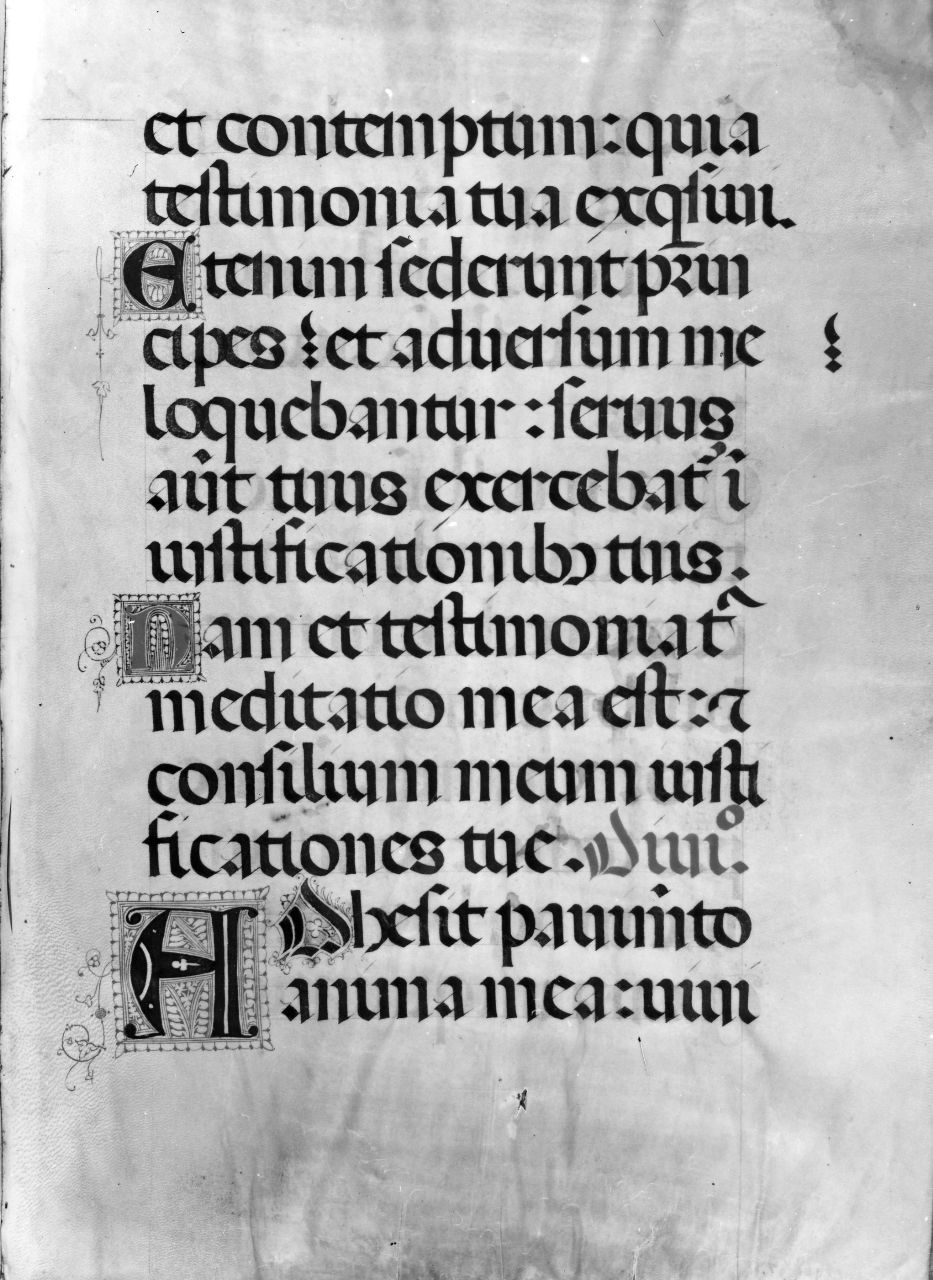 et contemptum: quia
testimonia tua exqsiui.
Etenim sederunt prin
cipes : et aduersum me
loquebantur : seruus
aūt tuus exercebat᷑ ī
iustificationibꝫ tuis.
Nam et testimonia t᷑
meditatio mea est: ⁊
consilium meum iusti
ficationes tue. Diuiº.
ADhesit pauim̄to
anima mea: uiui